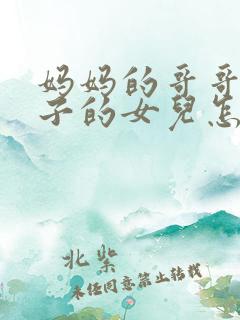 妈妈的哥哥
子的女兒怎
北紫
未经同意禁止转载